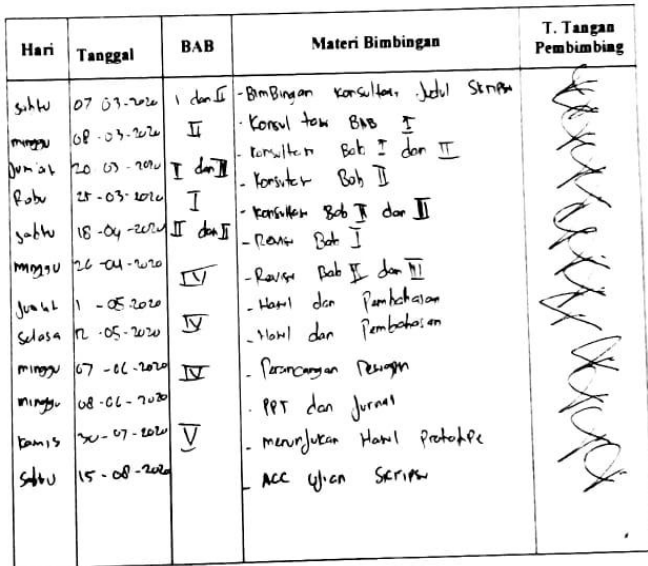 Hari Tanggal BAB Materi Bimbingan T. Tangan Pembimbing
Sabtu 07 03-2020 I dan II - Bimbingan Konsultasi Judul Skripsi
minggu 08-03-2020 II - Konsultasi BAB I
Jum'at 20 03-2020 I dan II - Konsultasi Bab I dan II
Rabu 25-03-2020 I - Konsultasi Bab II
Sabtu 18-04-2020 II dan II - Konsultasi Bab II dan II
- Revisi Bab I
minggu 26-04-2020 IV - Revisi Bab II dan III
Jum'at 1 -05.2020 - Hasil dan Pembahasan
Selasa 12 -05-2020 IV - Hasil dan Pembahasan
minggu 07 -06-2020 IV - Perancangan
minggu 08-06-2020 - PPT dan Jurnal
Kamis 30-07-2020 V - menunjukan Hasil Prototipe
Sabtu 15-08-2020 - ACC Ujian Skripsi